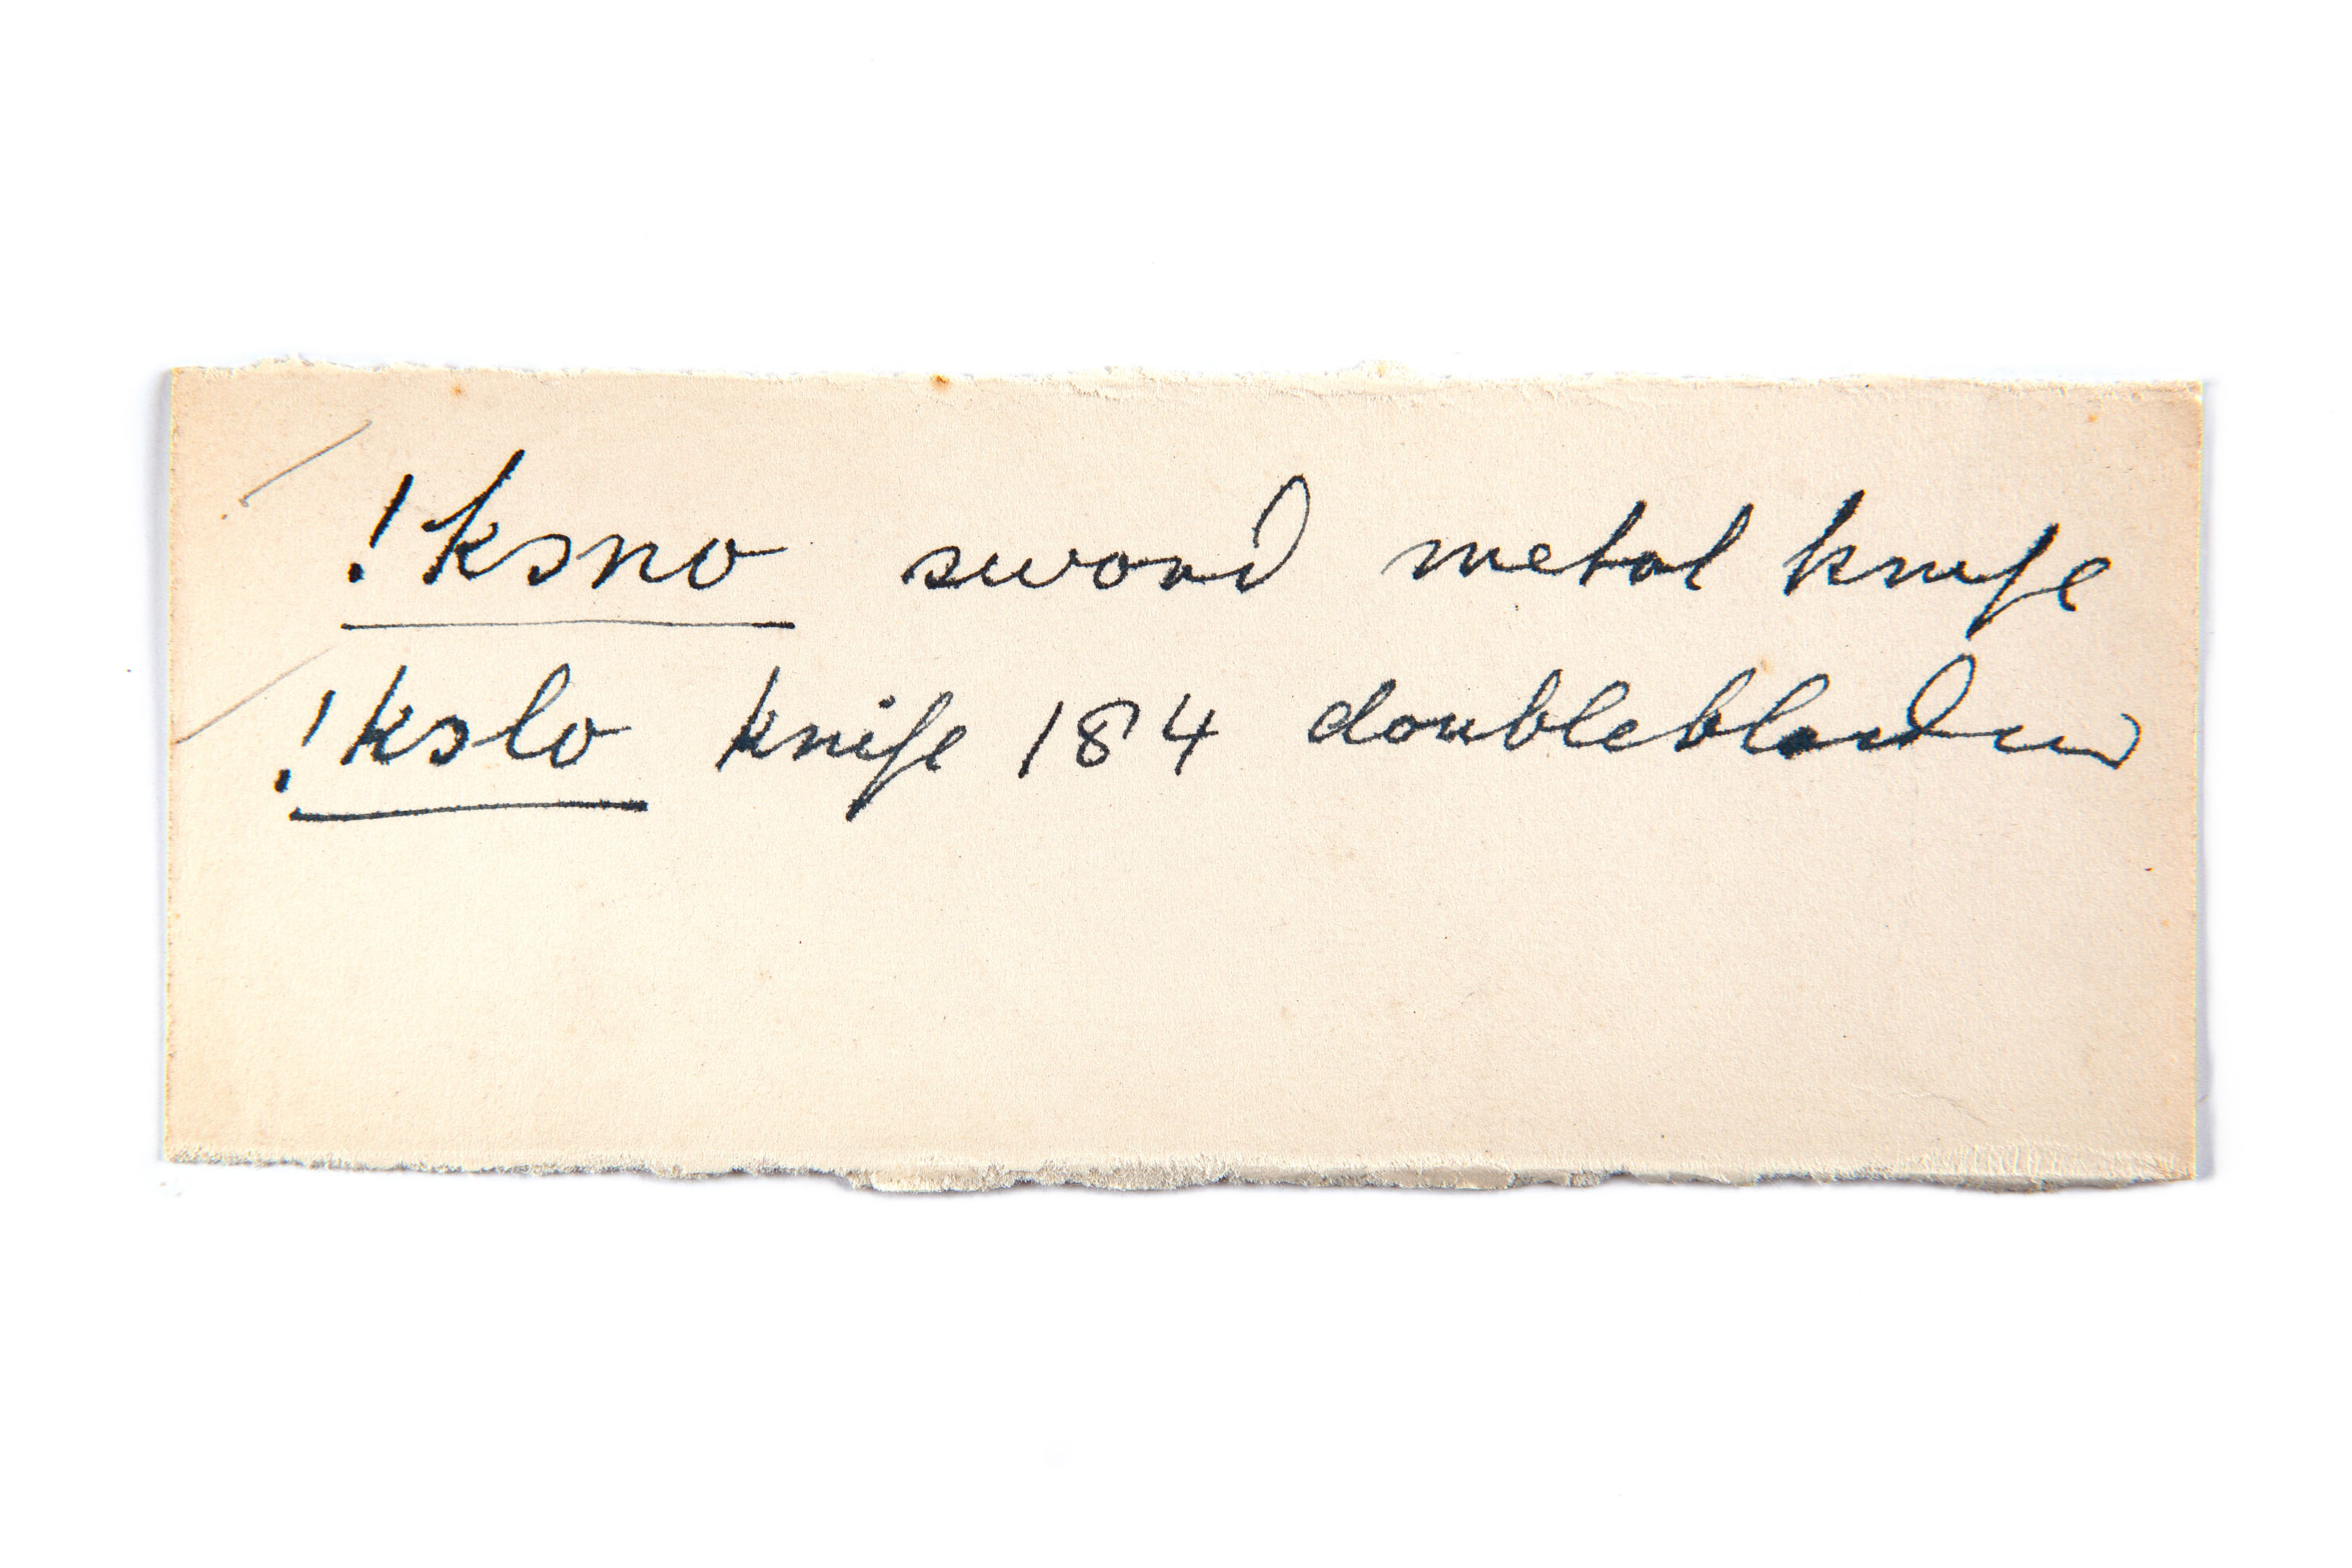 !ksno sword metal knife
!kslo knife 184